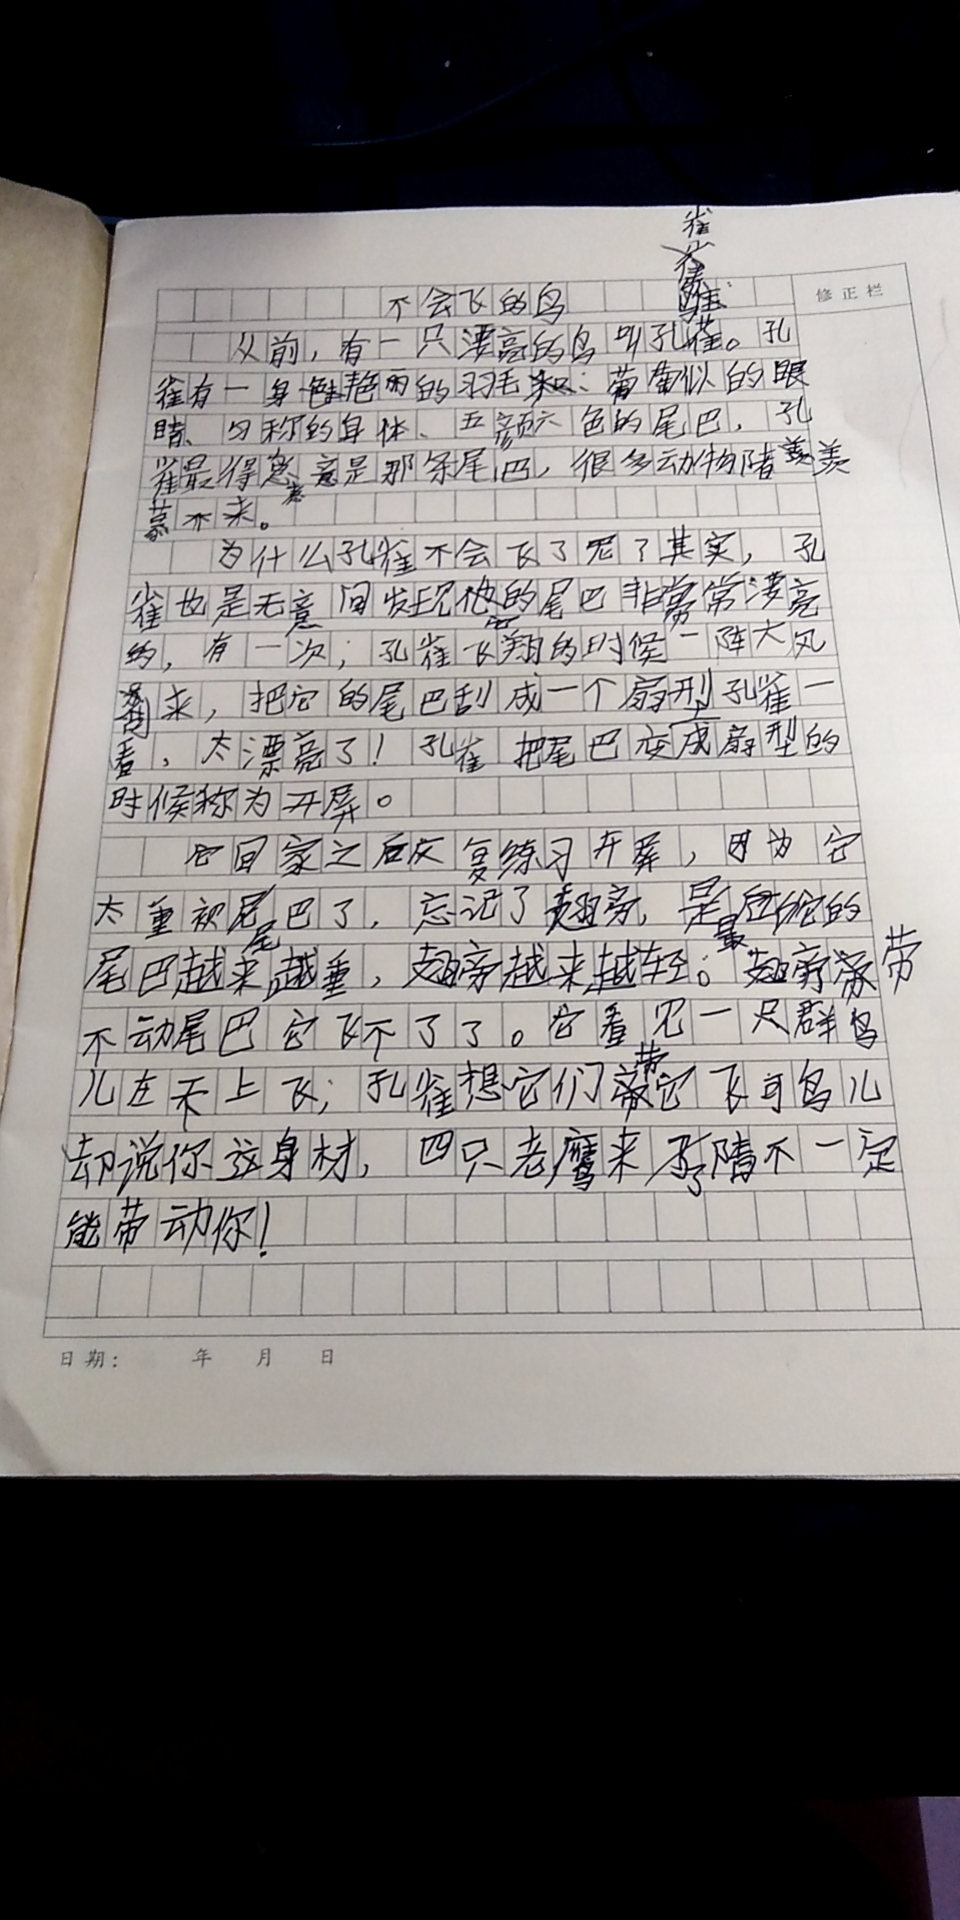 雀
修正栏
不会飞的鸟
从前，有一只漂亮的鸟叫孔雀。孔
雀有一身艳丽的羽毛、葡萄似的眼
睛、匀称的身体、五颜六色的尾巴，孔
雀最得意是那条尾巴，很多动物睹羡羡
慕不来。
为什么孔雀不会飞了呢？其实，孔
雀也是无意间发现它的尾巴非常漂亮
的，有一次；孔雀飞翔的时候一阵大风
刮来，把它的尾巴刮成一个扇型孔雀一
看，太漂亮了！孔雀把尾巴变成扇型的
时候称为开屏。
它回家之后反复练习开屏，因为它
太重视尾巴了，忘记了翅旁，最后它的
尾巴越来越重，翅旁越来越轻。翅旁带
不动尾巴它飞不了了。它看见一只群鸟
儿在天上飞；孔雀想它们带它飞可鸟儿
却说你这身材，四只老鹰来了睹不一定
能带动你！
日期： 年 月 日